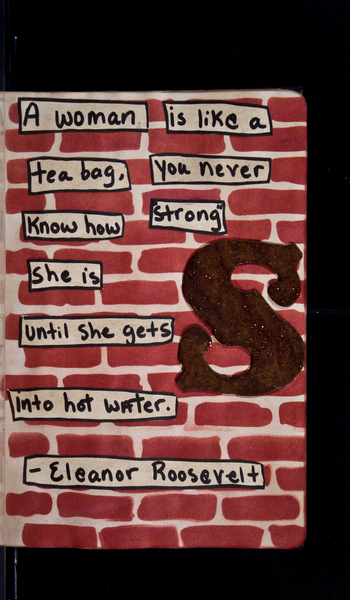 A woman is like a
tea bag. You never
Know how strong"
she is
until she gets
into hot water.
- Eleanor Roosevelt
S